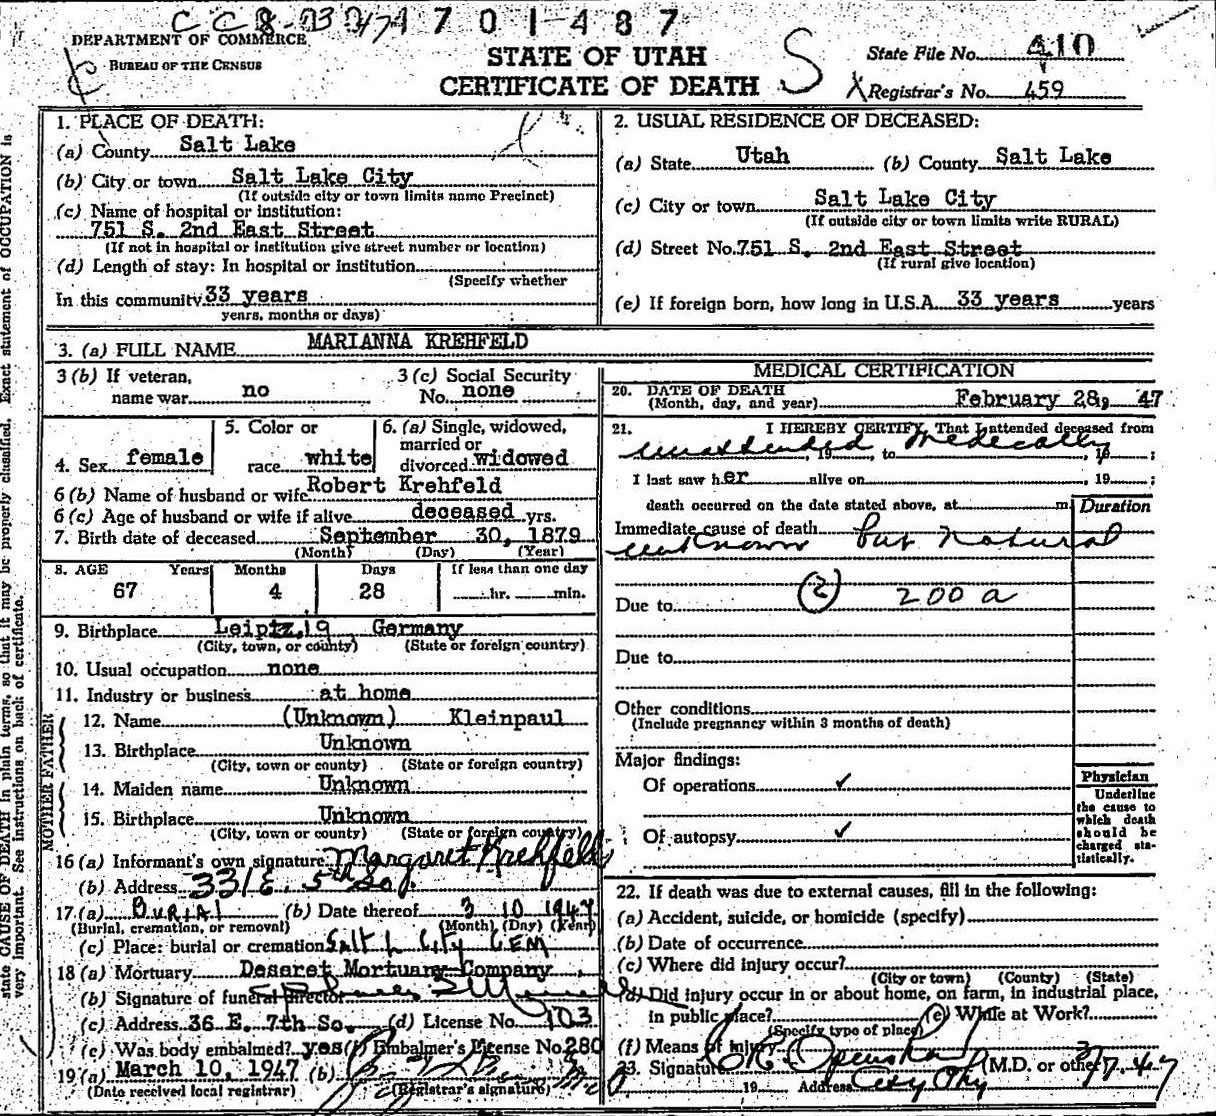 4701487
DEPARTMENT OF COMMERCE
BUREAU OF THE CENSUS
STATE OF UTAH
CERTIFICATE OF DEATH
S
State File No. 410
X Registrar's No. 459
1. PLACE OF DEATH:
(a) County Salt Lake
(b) City or town Salt Lake City
(If outside city or town limits name Precinct)
(c) Name of hospital or institution:
751 S. 2nd East Street
(If not in hospital or institution give street number or location)
(d) Length of stay: In hospital or institution
(Specify whether
In this community 33 years
years, months or days)
2. USUAL RESIDENCE OF DECEASED:
(a) State Utah (b) County Salt Lake
(c) City or town Salt Lake City
(If outside city or town limits write RURAL)
(d) Street No. 751 S. 2nd East Street
(If rural give location)
(e) If foreign born, how long in U.S.A. 33 years years
3. (a) FULL NAME MARIANNA KREHFELD
3 (b) If veteran, name war no
3 (c) Social Security No. none
4. Sex female
5. Color or race white
6. (a) Single, widowed, married or divorced widowed
6 (b) Name of husband or wife Robert Krehfeld
6 (c) Age of husband or wife if alive deceased yrs.
7. Birth date of deceased September 30, 1879
(Month) (Day) (Year)
8. AGE Years Months Days If less than one day
67 4 28 hr. min.
9. Birthplace Leiptzig Germany
(City, town, or county) (State or foreign country)
10. Usual occupation none
11. Industry or business at home
FATHER
12. Name (Unknown) Kleinpaul
13. Birthplace Unknown
(City, town or county) (State or foreign country)
MOTHER
14. Maiden name Unknown
15. Birthplace Unknown
(City, town or county) (State or foreign country)
16 (a) Informant's own signature Margaret Krehfeld
(b) Address 331 E. 5th So.
17 (a) BURIAL (b) Date thereof 3 10 1947
(Burial, cremation, or removal) (Month) (Day) (Year)
(c) Place: burial or cremation SALT L CITY CEM
18 (a) Mortuary Deseret Mortuary Company
(b) Signature of funeral director
(c) Address 36 E. 7th So. (d) License No. 103
(e) Was body embalmed? yes (f) Embalmer's License No. 280
19 (a) March 10, 1947 (b)
(Date received local registrar) (Registrar's signature)
MEDICAL CERTIFICATION
20. DATE OF DEATH
(Month, day, and year) February 28, 47
21. I HEREBY CERTIFY, That I attended deceased from
unattended, 19 to medically, 19 ;
I last saw her alive on , 19 ;
death occurred on the date stated above, at m. Duration
Immediate cause of death
unknown but natural
Due to (2) 200a
Due to
Other conditions
(Include pregnancy within 3 months of death)
Major findings:
Of operations ✓
Of autopsy ✓
Physician
Underline the cause to which death should be charged statistically.
22. If death was due to external causes, fill in the following:
(a) Accident, suicide, or homicide (specify)
(b) Date of occurrence
(c) Where did injury occur?
(City or town) (County) (State)
(d) Did injury occur in or about home, on farm, in industrial place,
in public place? (e) While at Work?
(Specify type of place)
(f) Means of injury
23. Signature (M.D. or other) 3/7 47
19 Address
state CAUSE OF DEATH in plain terms, so that it may be properly classified. Exact statement of OCCUPATION is
very important. See instructions on back of certificate.